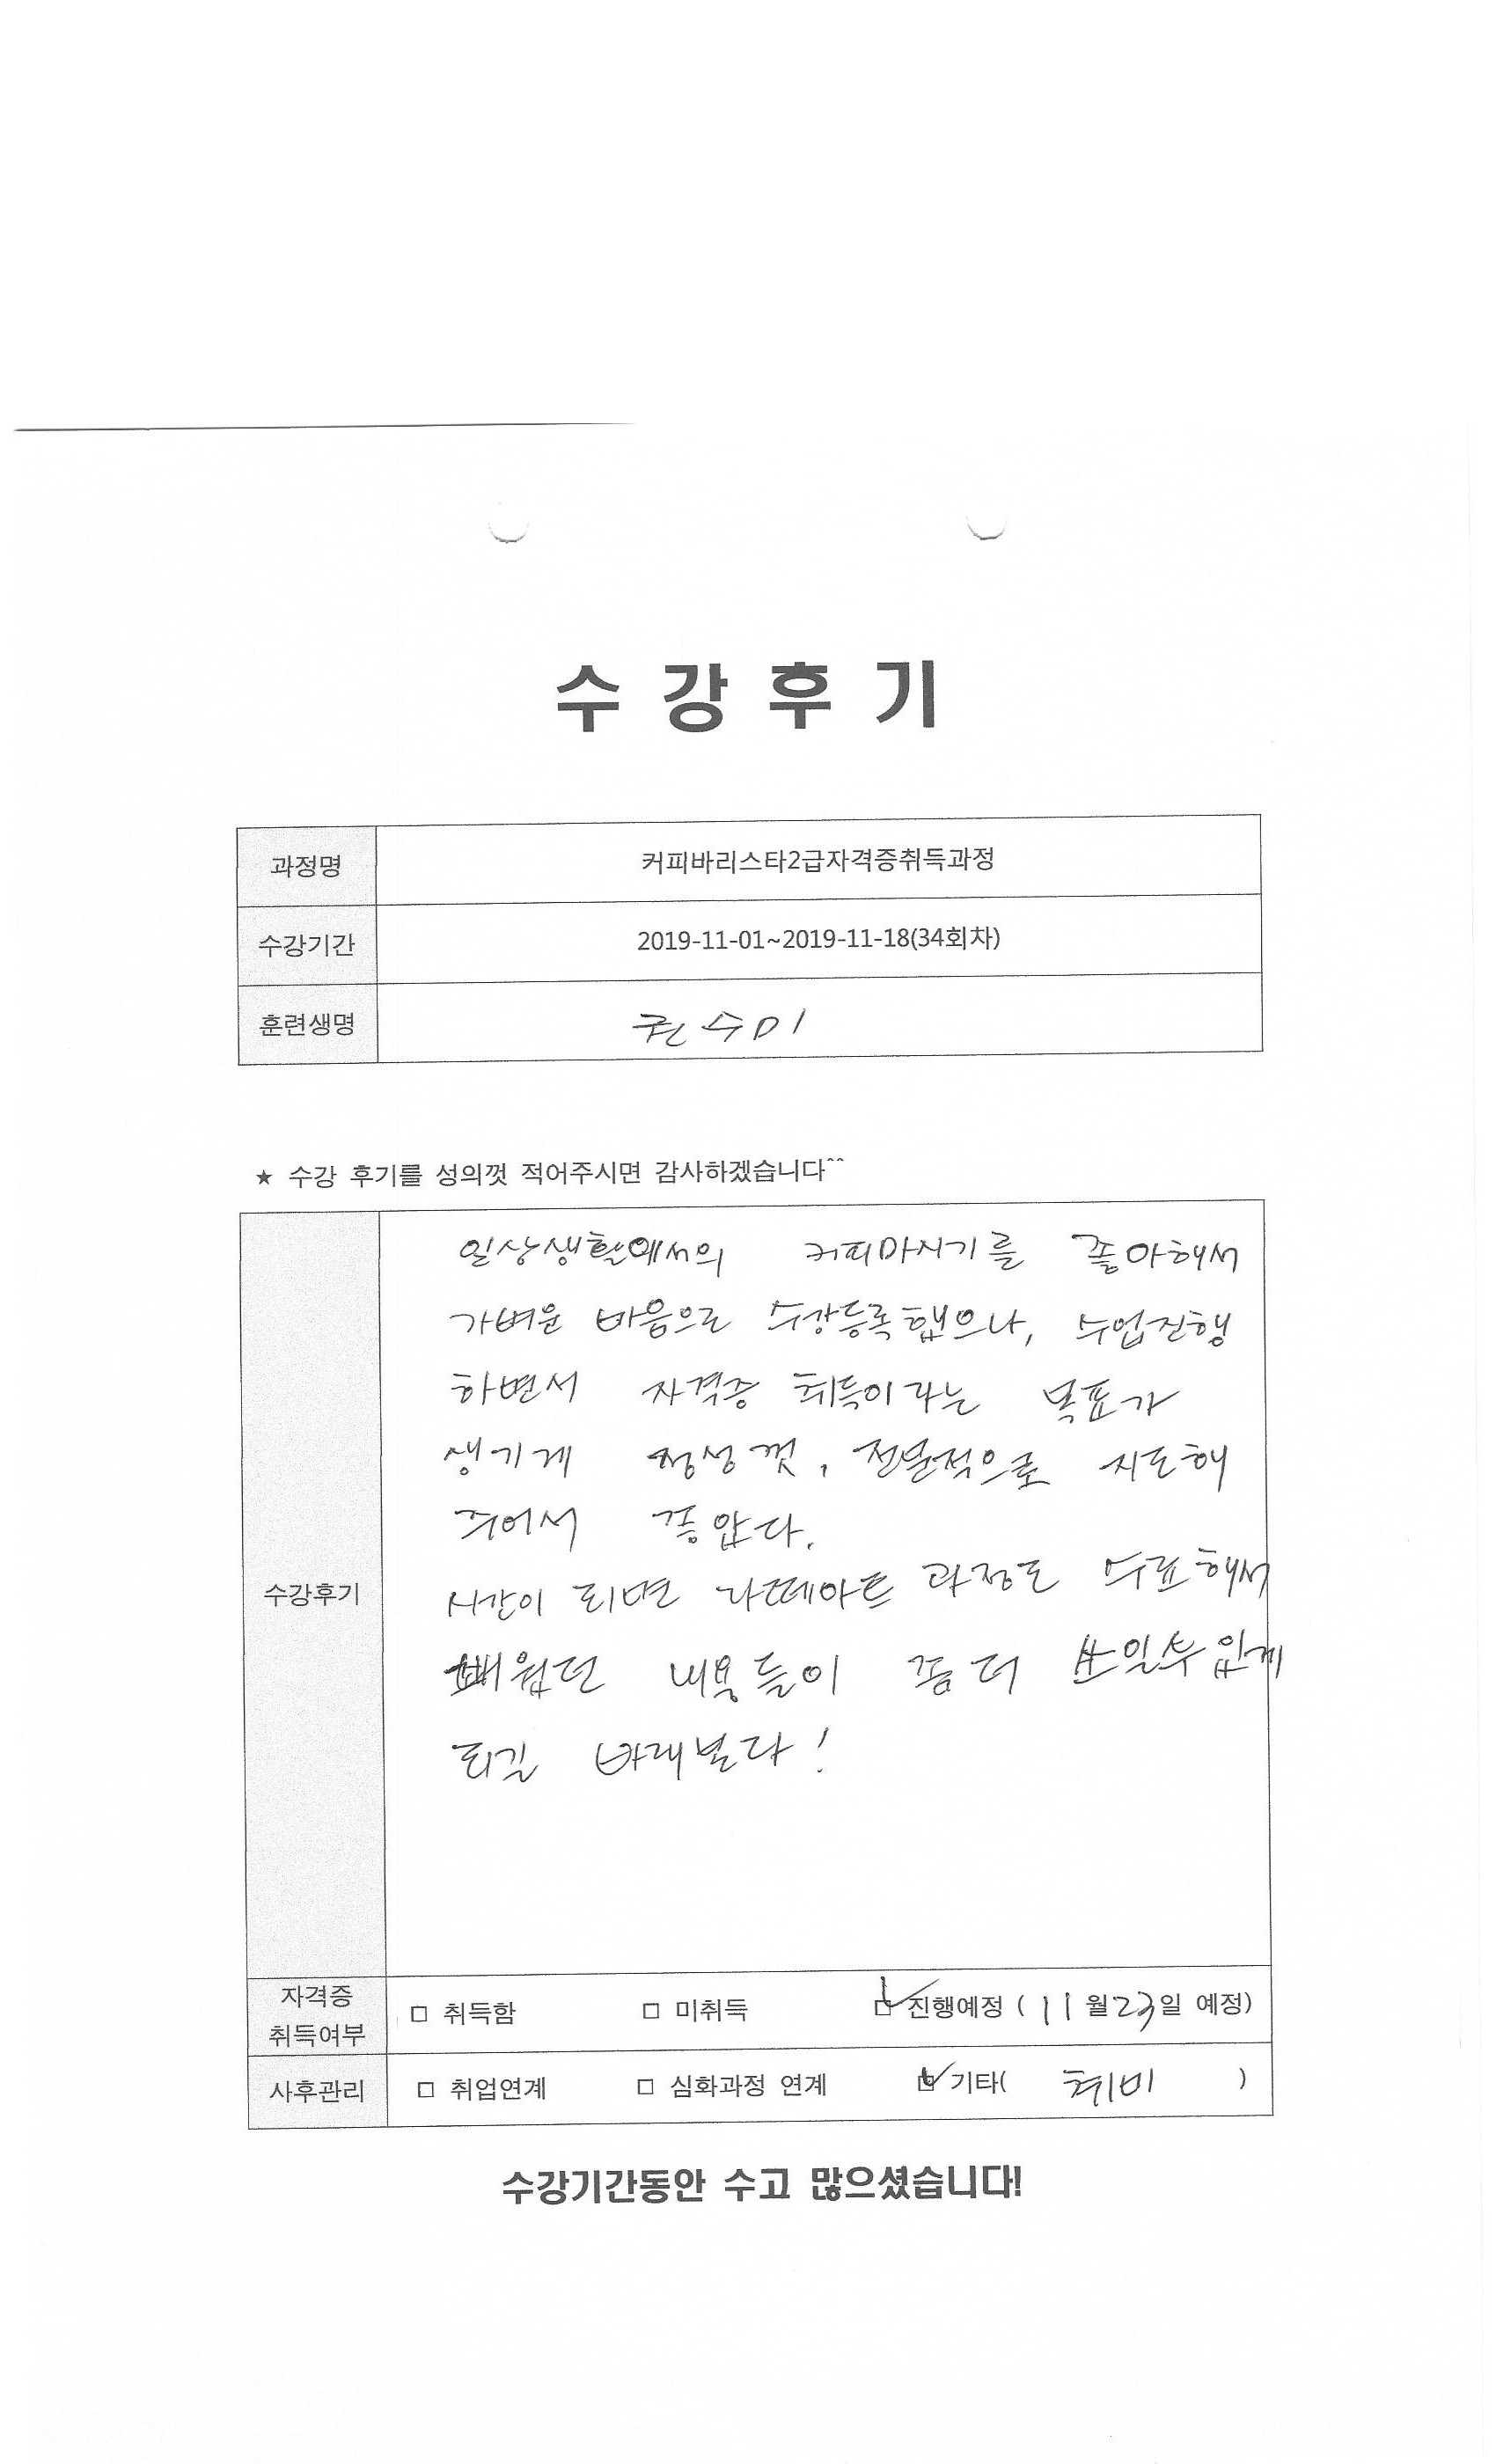 수 강 후 기
과정명 커피바리스타2급자격증취득과정
수강기간 2019-11-01~2019-11-18(34회차)
훈련생명 권수미
★ 수강 후기를 성의껏 적어주시면 감사하겠습니다^^
일상생활에서의 커피마시기를 좋아해서
가벼운 마음으로 수강등록했으나, 수업진행
하면서 자격증 취득이라는 목표가
생기게 정성껏, 지도해
주어서 좋았다.
시간이 되면 라떼아트 과정도 수료해서
배웠던 내용들이 좀더 쓰일수있게
되길 바래본다!
수강후기
자격증
취득여부 □ 취득함 □ 미취득 □ 진행예정 ( 11 월 23일 예정)
사후관리 □ 취업연계 □ 심화과정 연계 □ 기타( 취미 )
수강기간동안 수고 많으셨습니다!